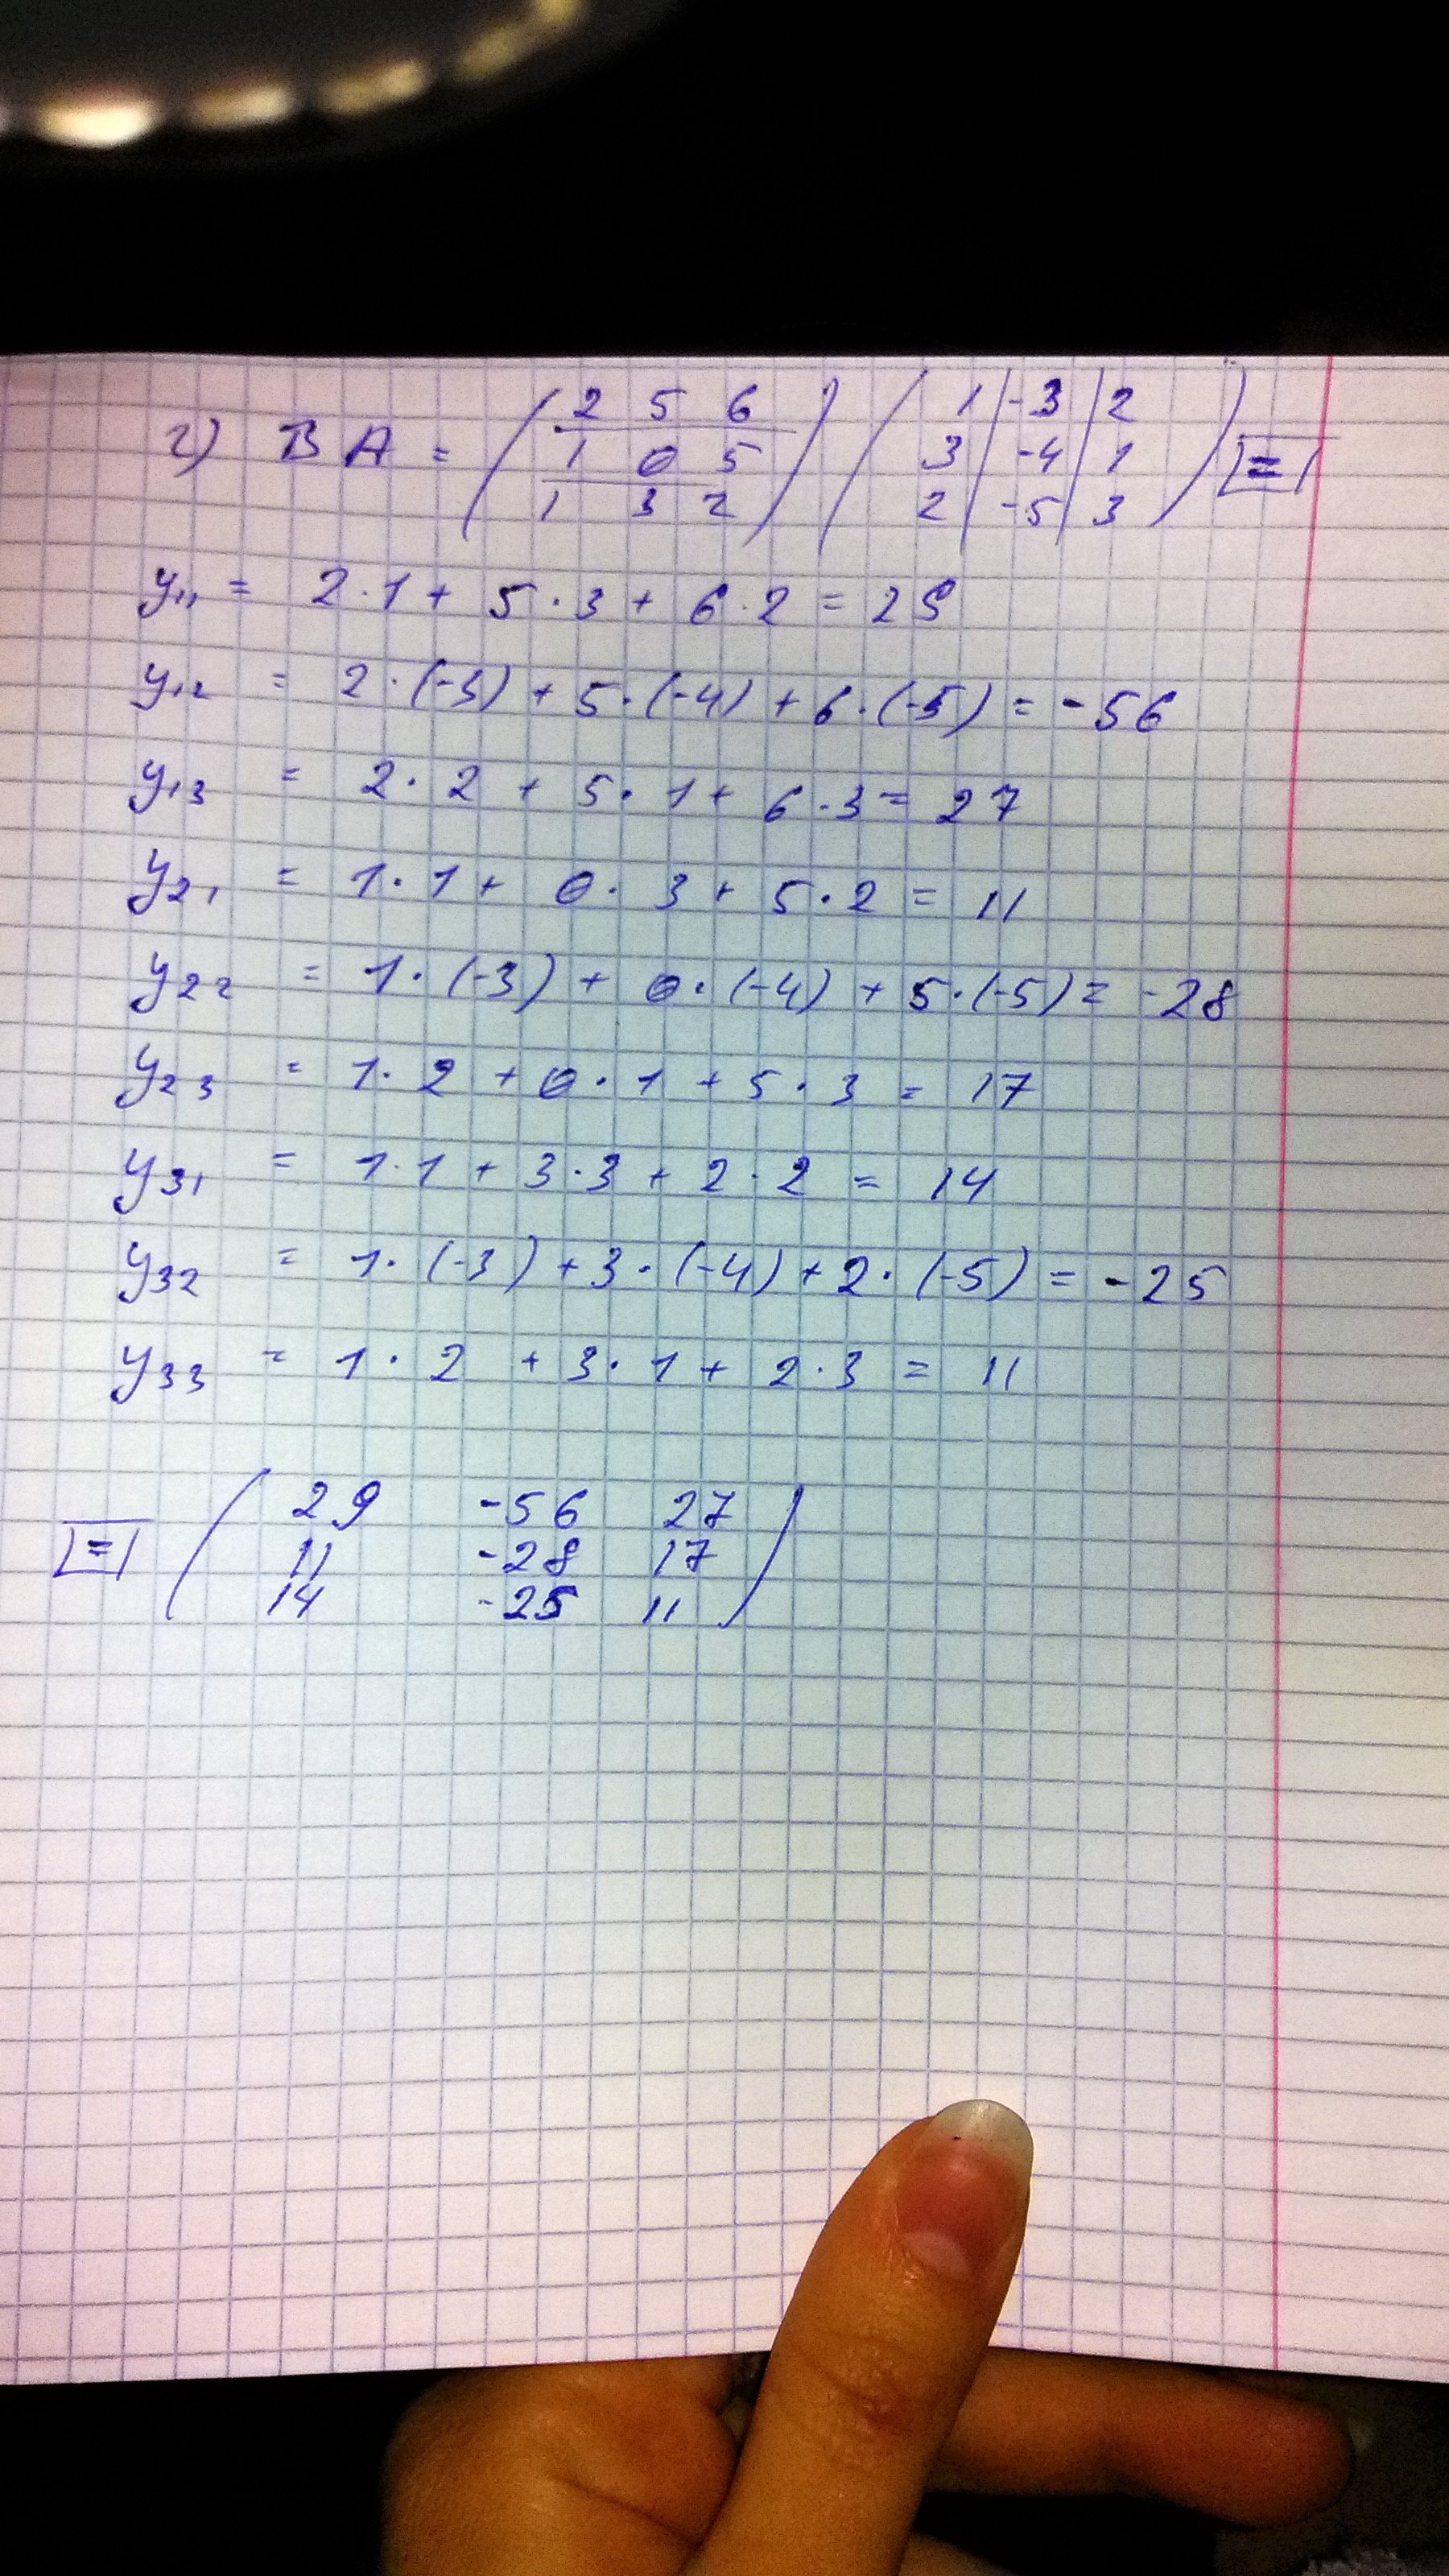 г) BA = ( 2 5 6 ) ( 1 | -3 | 2 ) |=|
1 0 5 3 | -4 | 1
1 3 2 2 | -5 | 3
y11 = 2·1 + 5·3 + 6·2 = 29
y12 = 2·(-3) + 5·(-4) + 6·(-5) = -56
y13 = 2·2 + 5·1 + 6·3 = 27
y21 = 1·1 + 0·3 + 5·2 = 11
y22 = 1·(-3) + 0·(-4) + 5·(-5) = -28
y23 = 1·2 + 0·1 + 5·3 = 17
y31 = 1·1 + 3·3 + 2·2 = 14
y32 = 1·(-3) + 3·(-4) + 2·(-5) = -25
y33 = 1·2 + 3·1 + 2·3 = 11
( 29 -56 27 )
|=| 11 -28 17
14 -25 11